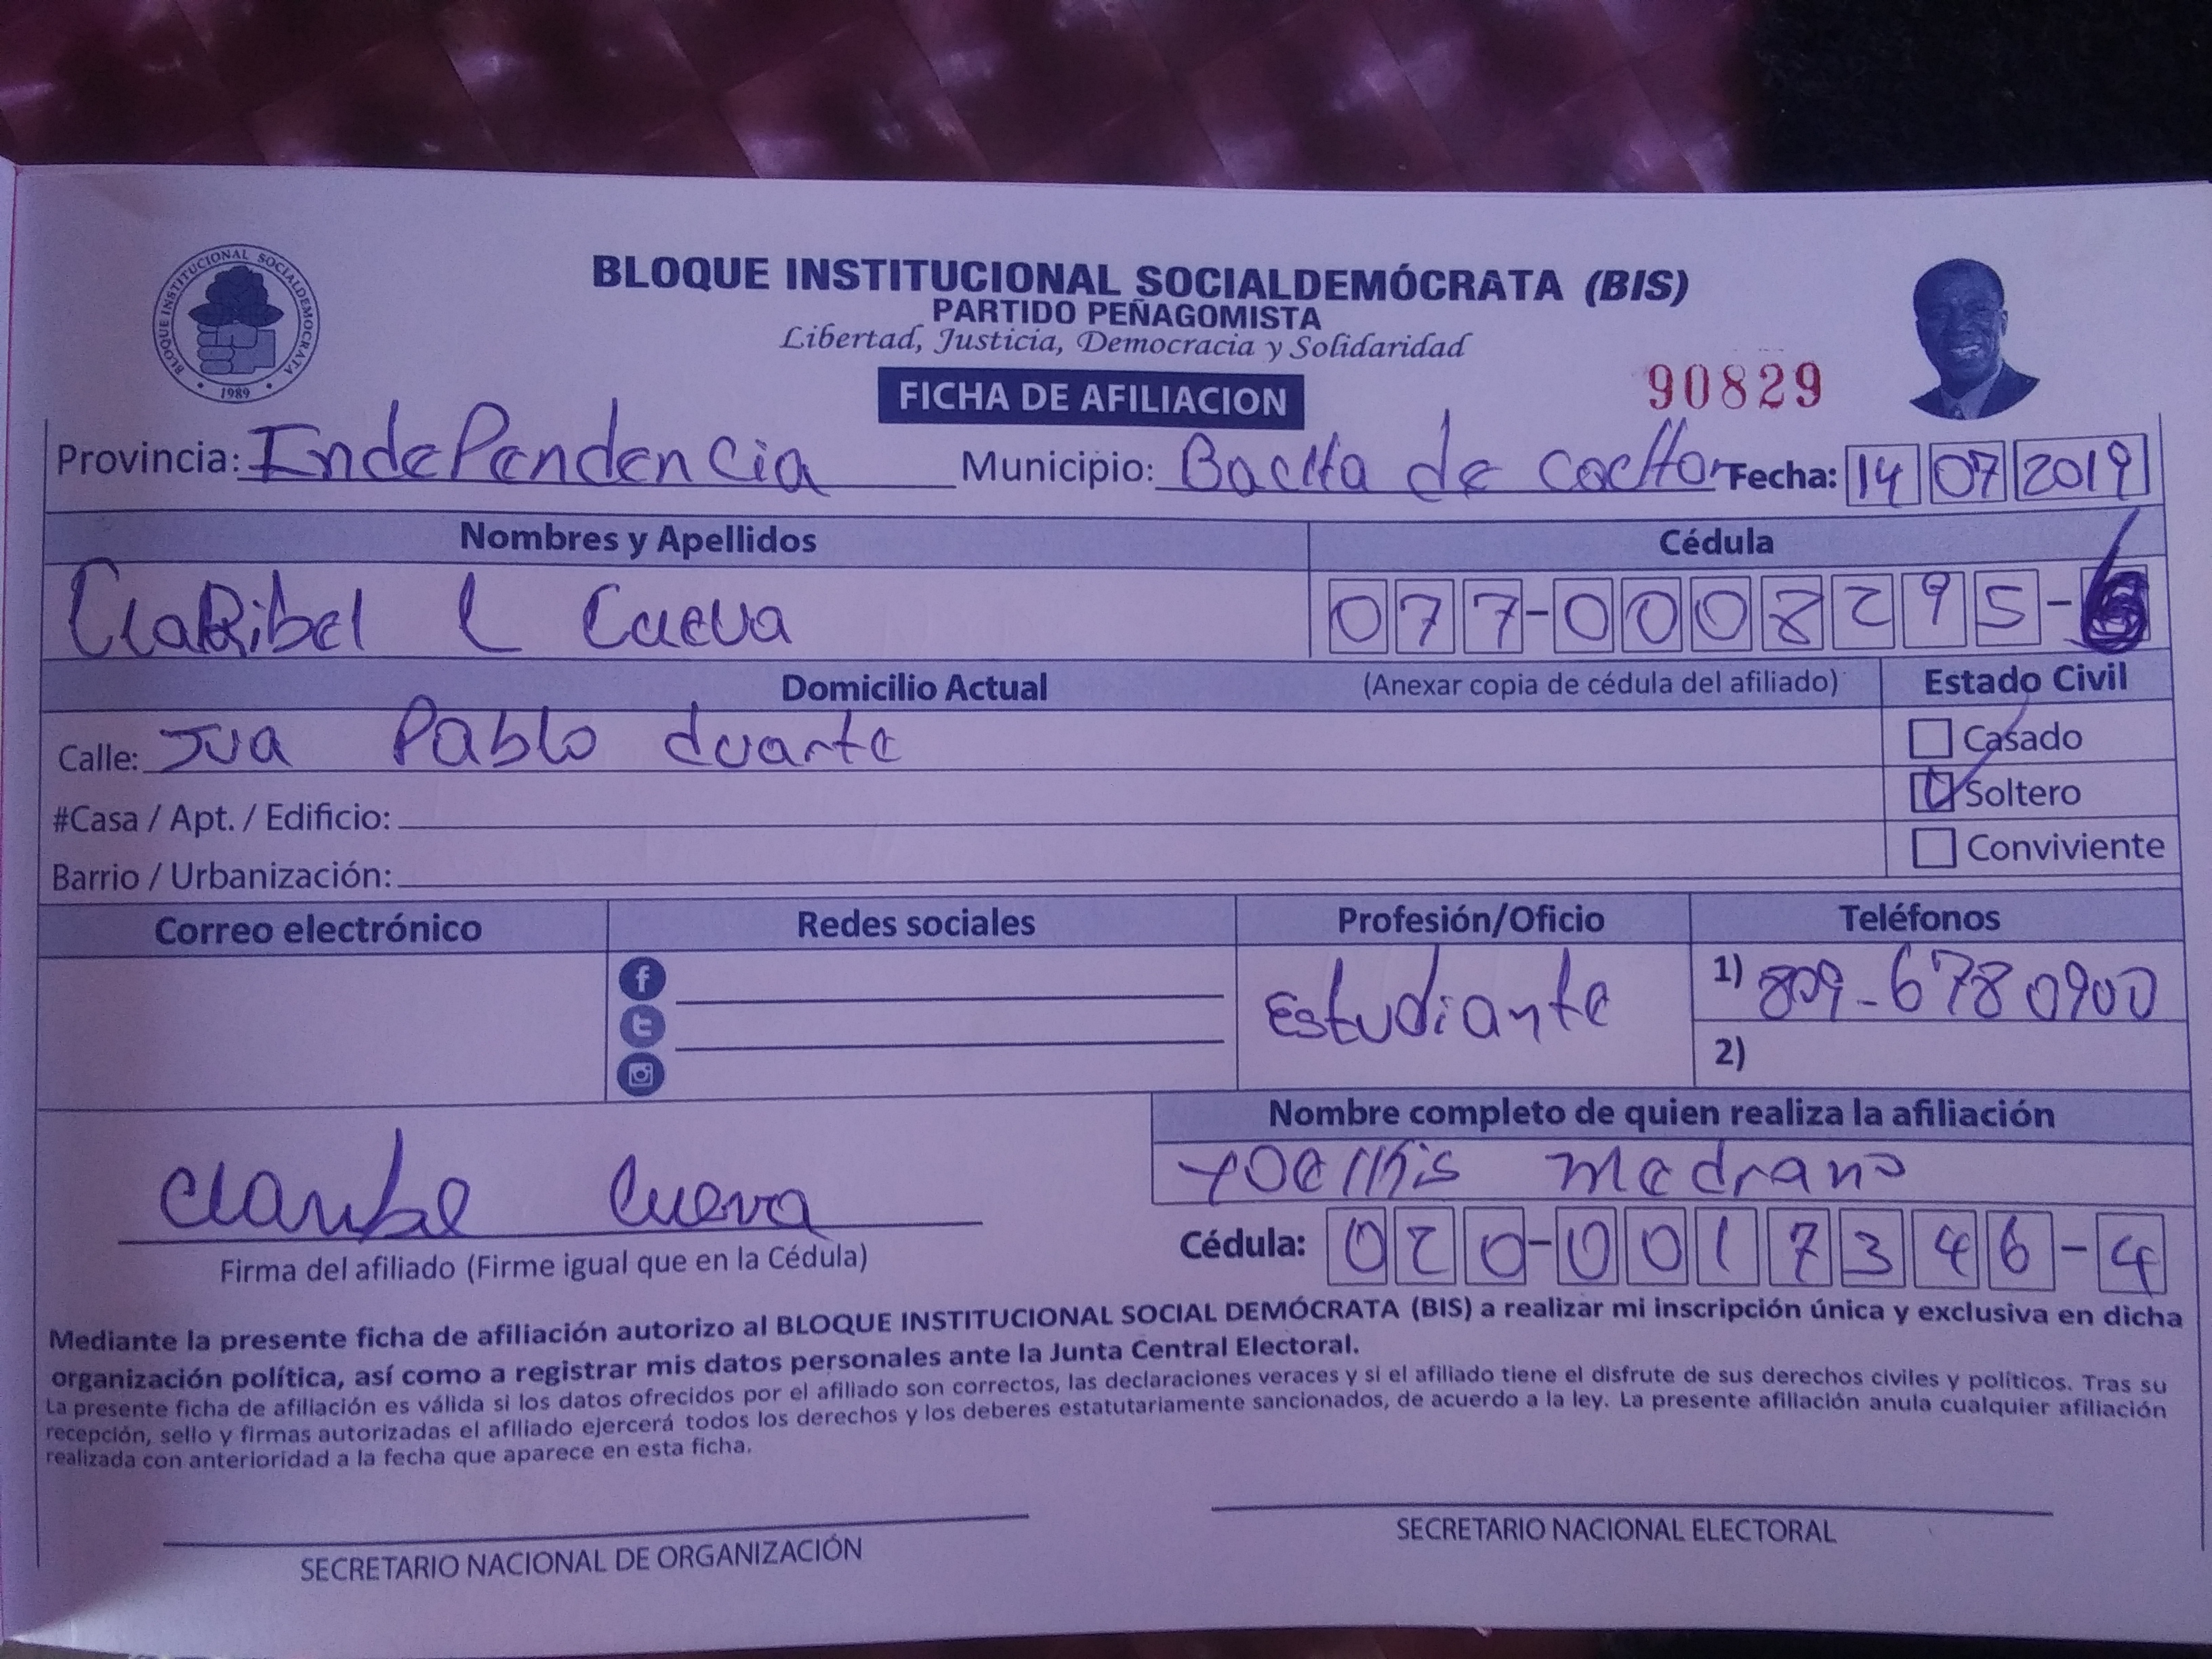 BLOQUE INSTITUCIONAL SOCIALDEMOCRATA
1989
BLOQUE INSTITUCIONAL SOCIALDEMÓCRATA (BIS)
PARTIDO PEÑAGOMISTA
Libertad, Justicia, Democracia y Solidaridad
FICHA DE AFILIACION
90829
Provincia: IndePendencia Municipio: de Fecha: 14 07 2019
Nombres y Apellidos Cédula
ClaRibel L Cueva 077-0008295-6
Domicilio Actual (Anexar copia de cédula del afiliado) Estado Civil
Calle: Jua Pablo duarte Casado
#Casa / Apt. / Edificio: Soltero
Barrio / Urbanización: Conviviente
Correo electrónico Redes sociales Profesión/Oficio Teléfonos
Estudiante 1) 809-6780900
2)
Nombre completo de quien realiza la afiliación
medrano
Claribel Cueva
Firma del afiliado (Firme igual que en la Cédula)
Cédula: 020-0017346-4
Mediante la presente ficha de afiliación autorizo al BLOQUE INSTITUCIONAL SOCIAL DEMÓCRATA (BIS) a realizar mi inscripción única y exclusiva en dicha
organización política, así como a registrar mis datos personales ante la Junta Central Electoral.
La presente ficha de afiliación es válida si los datos ofrecidos por el afiliado son correctos, las declaraciones veraces y si el afiliado tiene el disfrute de sus derechos civiles y políticos. Tras su
recepción, sello y firmas autorizadas el afiliado ejercerá todos los derechos y los deberes estatutariamente sancionados, de acuerdo a la ley. La presente afiliación anula cualquier afiliación
realizada con anterioridad a la fecha que aparece en esta ficha.
SECRETARIO NACIONAL DE ORGANIZACIÓN
SECRETARIO NACIONAL ELECTORAL